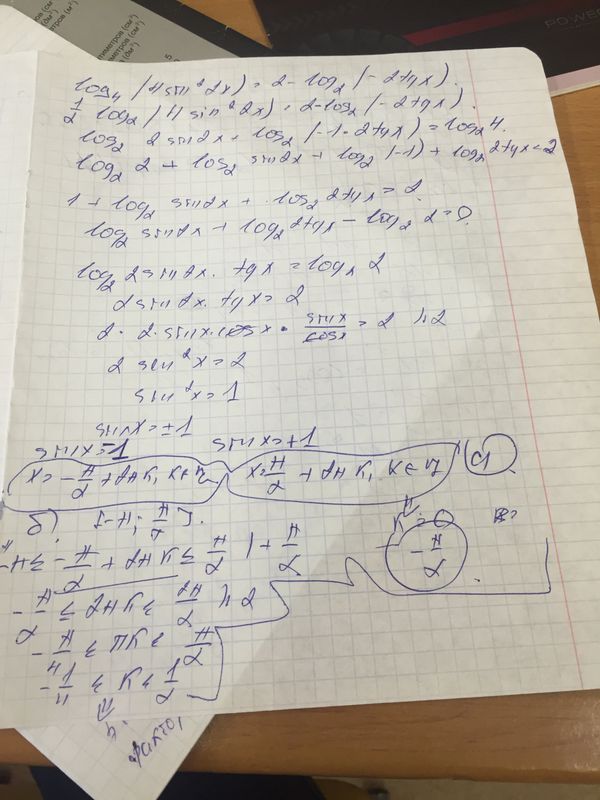 log₄ (4 sin² 2x) = 2 - log₂ (-2tgx).
1/2 log₂ (4 sin² 2x) = 2 - log₂ (-2tgx).
log₂ 2 sin 2x + log₂ (-1 · 2tgx) = log₂ 4.
log₂ 2 + log₂ sin 2x + log₂ (-1) + log₂ 2tgx = 2
1 + log₂ sin 2x + log₂ 2tgx = 2
log₂ sin 2x + log₂ 2tgx - log₂ 2 = 0
log₂ 2 sin 2x · tgx = log₂ 2
2 sin 2x · tgx = 2
2 · 2 · sinx · cosx · sinx/cosx = 2 |:2
2 sin² x = 2
sin² x = 1
sinx = ±1
sinx = -1 sinx = +1
x = -π/2 + 2πk, k∈Z x = π/2 + 2πk, k∈Z а)
б) [-π; π/2].
-π ≤ -π/2 + 2πk ≤ π/2 | + π/2 k = 0
-π/2 ≤ 2πk ≤ 2π/2 |:2 -π/2
-π/4 ≤ πk ≤ π/2
-1/4 ≤ k ≤ 1/2
POWER